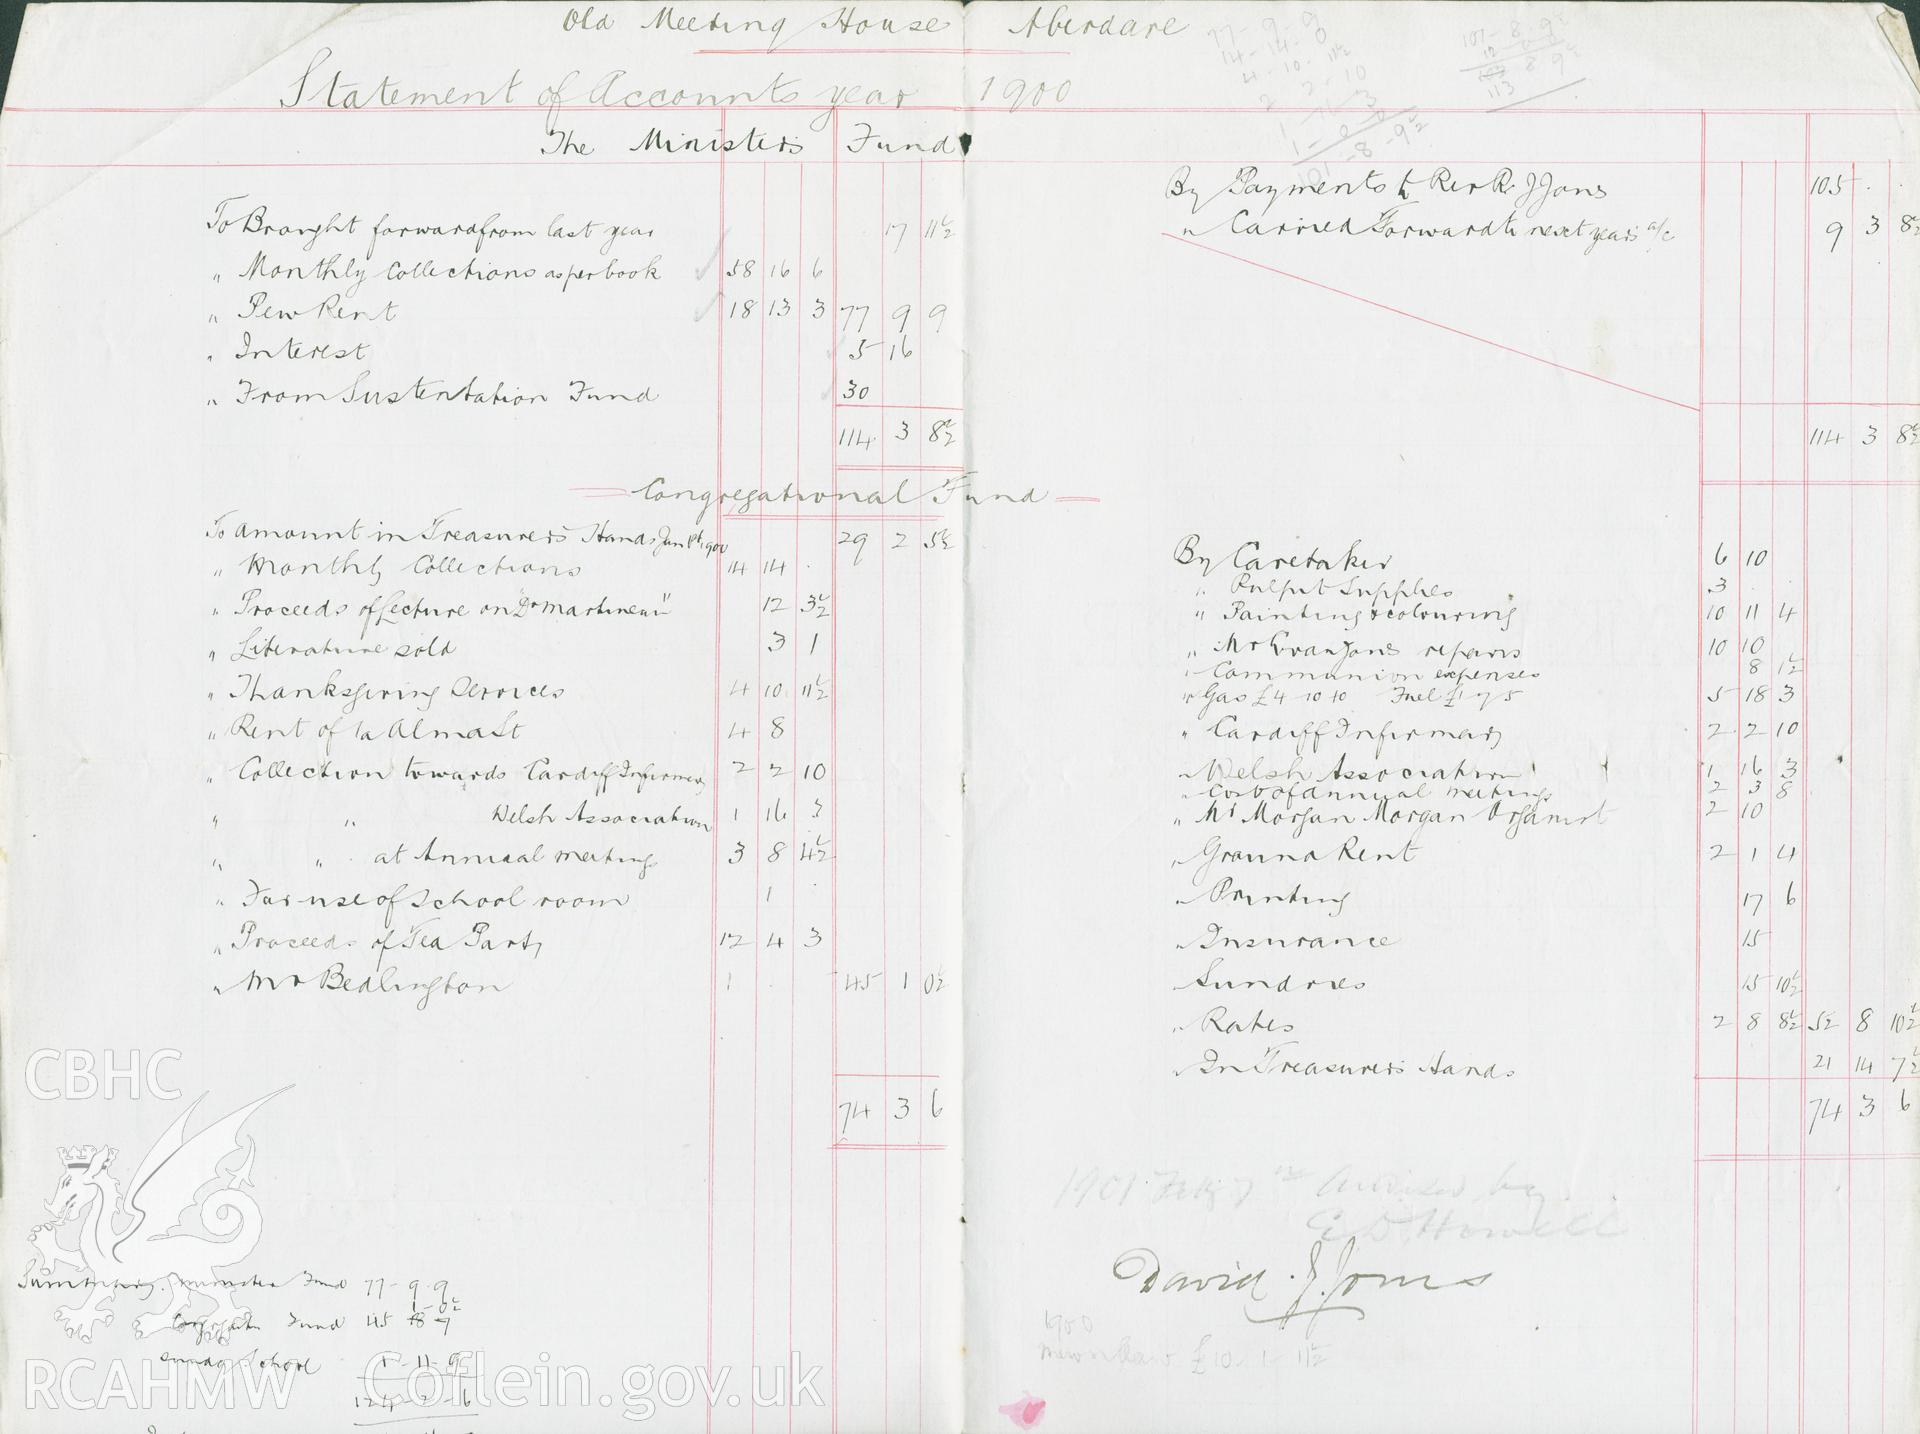 Old Meeting House Aberdare
Statement of Accounts year 1900
The Ministers Fund
To Brought forward from last year 17 11½
" Monthly Collections as per book 58 16 6
" Pew Rent 18 13 3 77 9 9
" Interest 5 16
" From Sustentation Fund 30
114 3 8½
By Payments to Rev R. J Jones 105 . .
" Carried Forward to next years a/c 9 3 8½
114 3 8½
Congregational Fund
To amount in Treasurers Hands Jan 1st 1900 29 2 5½
" Monthly Collections 14 14 .
" Proceeds of Lecture on "Dr Martineau" 12 3½
" Literature sold 3 1
" Thanksgiving Services 4 10 11½
" Rent of 1a Alma St 4 8
" Collection towards Cardiff Infirmary 2 2 10
" " Welsh Association 1 16 3
" " at Annual meetings 3 8 4½
" For use of School room 1 .
" Proceeds of Tea Party 12 4 3
" Mr Bedlington 1 . 45 1 0½
74 3 6
By Caretaker 6 10
" Pulpit Supplies 3 . .
" Painting & colouring 10 11 4
" Mr Evan Jones repairs 10 10
" Communion expenses 8 1½
" Gas £4 10 10 Fuel £1 7 5 5 18 3
" Cardiff Infirmary 2 2 10
" Welsh Association 1 16 3
" Cost of annual meetings 2 3 8
" Mr Morgan Morgan Organist 2 10
" Ground Rent 2 1 4
" Printing 17 6
" Insurance 15
Sundries 15 10½
" Rates 2 8 8½ 52 8 10½
" In Treasurers Hands 21 14 7½
74 3 6
1901 Feby 7th Audited by
E. D. Howell
David J. Jones
1900
£10 1 11½
Summary. Minister Fund 77-9-9
1-0½
Congregation Fund 45 18 7
Sunday School 1-11-9
124-2-6
77-9-9
14-14-0
4-10-11½
2 2-10
1 16 3
1-0 0
101-8-9½
101-8-9½
12 0 0
113 8 9½
113
CBHC
RCAHMW Coflein.gov.uk